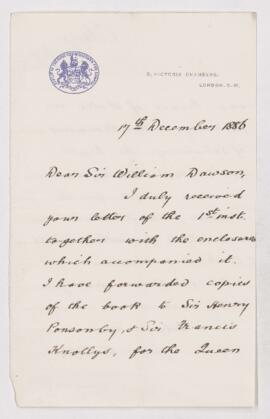 5, VICTORIA CHAMBERS,
LONDON, S.W.
17th December 1886
Dear Sir William Dawson,
I duly received
your letter of the 1st inst.
together with the enclosures
which accompanied it.
I have forwarded copies
of the book to Sir Henry
Ponsonby, & Sir Francis
Knollys, for the Queen